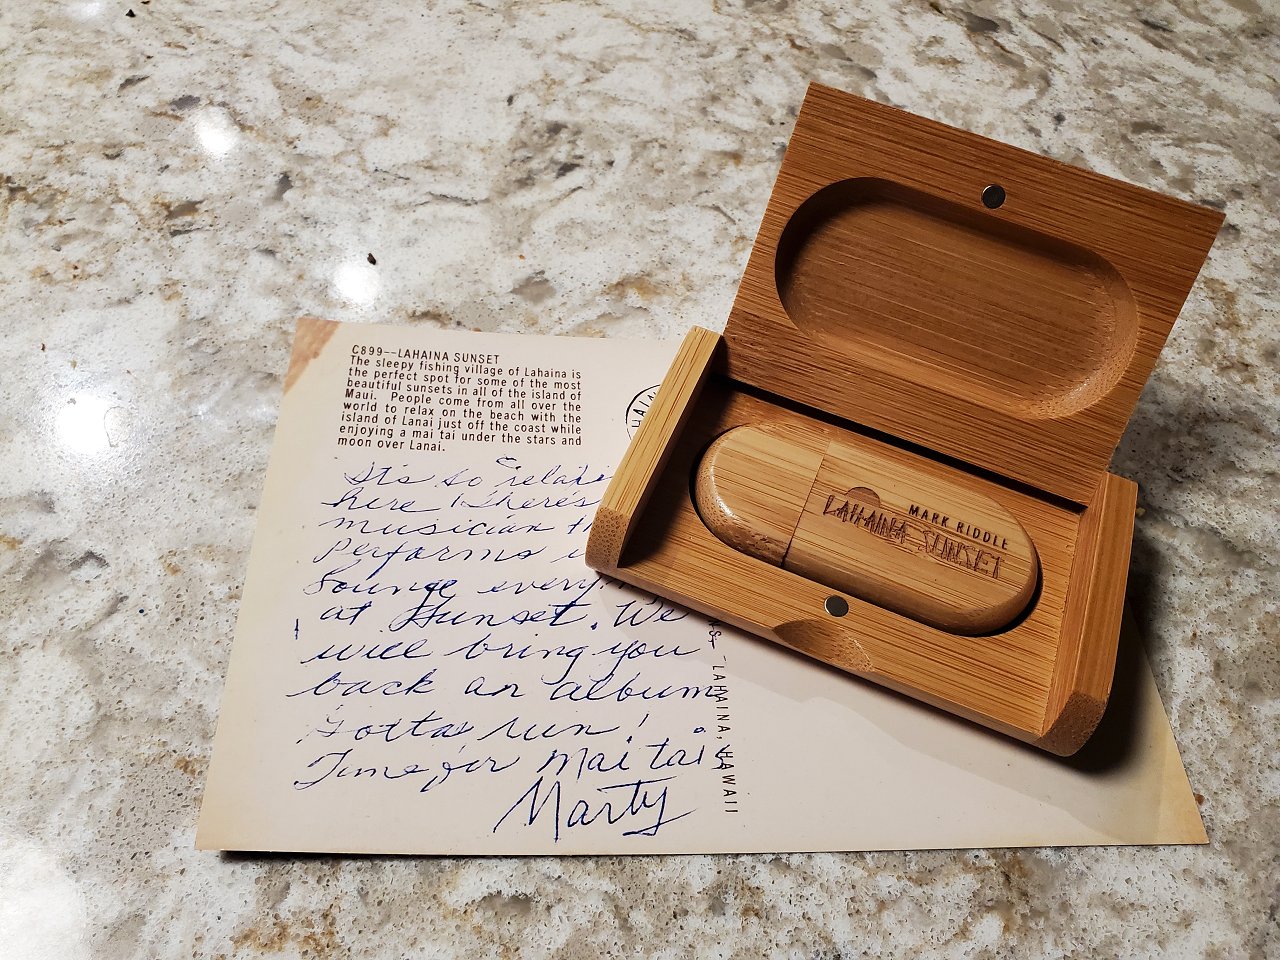 C899--LAHAINA SUNSET
The sleepy fishing village of Lahaina is
the perfect spot for some of the most
beautiful sunsets in all of the island of
Maui. People come from all over the
world to relax on the beach with the
island of Lanai just off the coast while
enjoying a mai tai under the stars and
moon over Lanai.
It's so
here! There's
musician
performs
lounge every
at Sunset. We
will bring you
back an album
Gotta run!
Time for Mai tais
Marty
LAHAINA, HAWAII
MARK RIDDLE
LAHAINA SUNSET